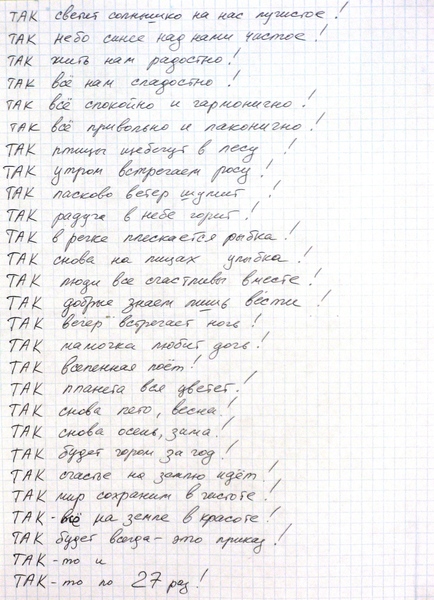 ТАК светит солнышко на нас лучистое!
ТАК небо синее над нами чистое!
ТАК жить нам радостно!
ТАК всё нам сладостно!
ТАК всё спокойно и гармонично!
ТАК всё привольно и лаконично!
ТАК птицы щебечут в лесу!
ТАК утром встречаем росу!
ТАК ласково ветер шумит!
ТАК радуга в небе горит!
ТАК в речке плескается рыбка!
ТАК снова на лицах улыбка!
ТАК люди все счастливы вместе!
ТАК добрые знаем лишь вести!
ТАК вечер встречает ночь!
ТАК мамочка любит дочь!
ТАК вселенная поёт!
ТАК планета вся цветет!
ТАК снова лето, весна!
ТАК снова осень, зима!
ТАК будет год за год!
ТАК счастье на землю идёт!
ТАК мир сохраним в чистоте!
ТАК - всё на земле в красоте!
ТАК будет всегда - это приказ!
ТАК - то и
ТАК - то по 27 раз!